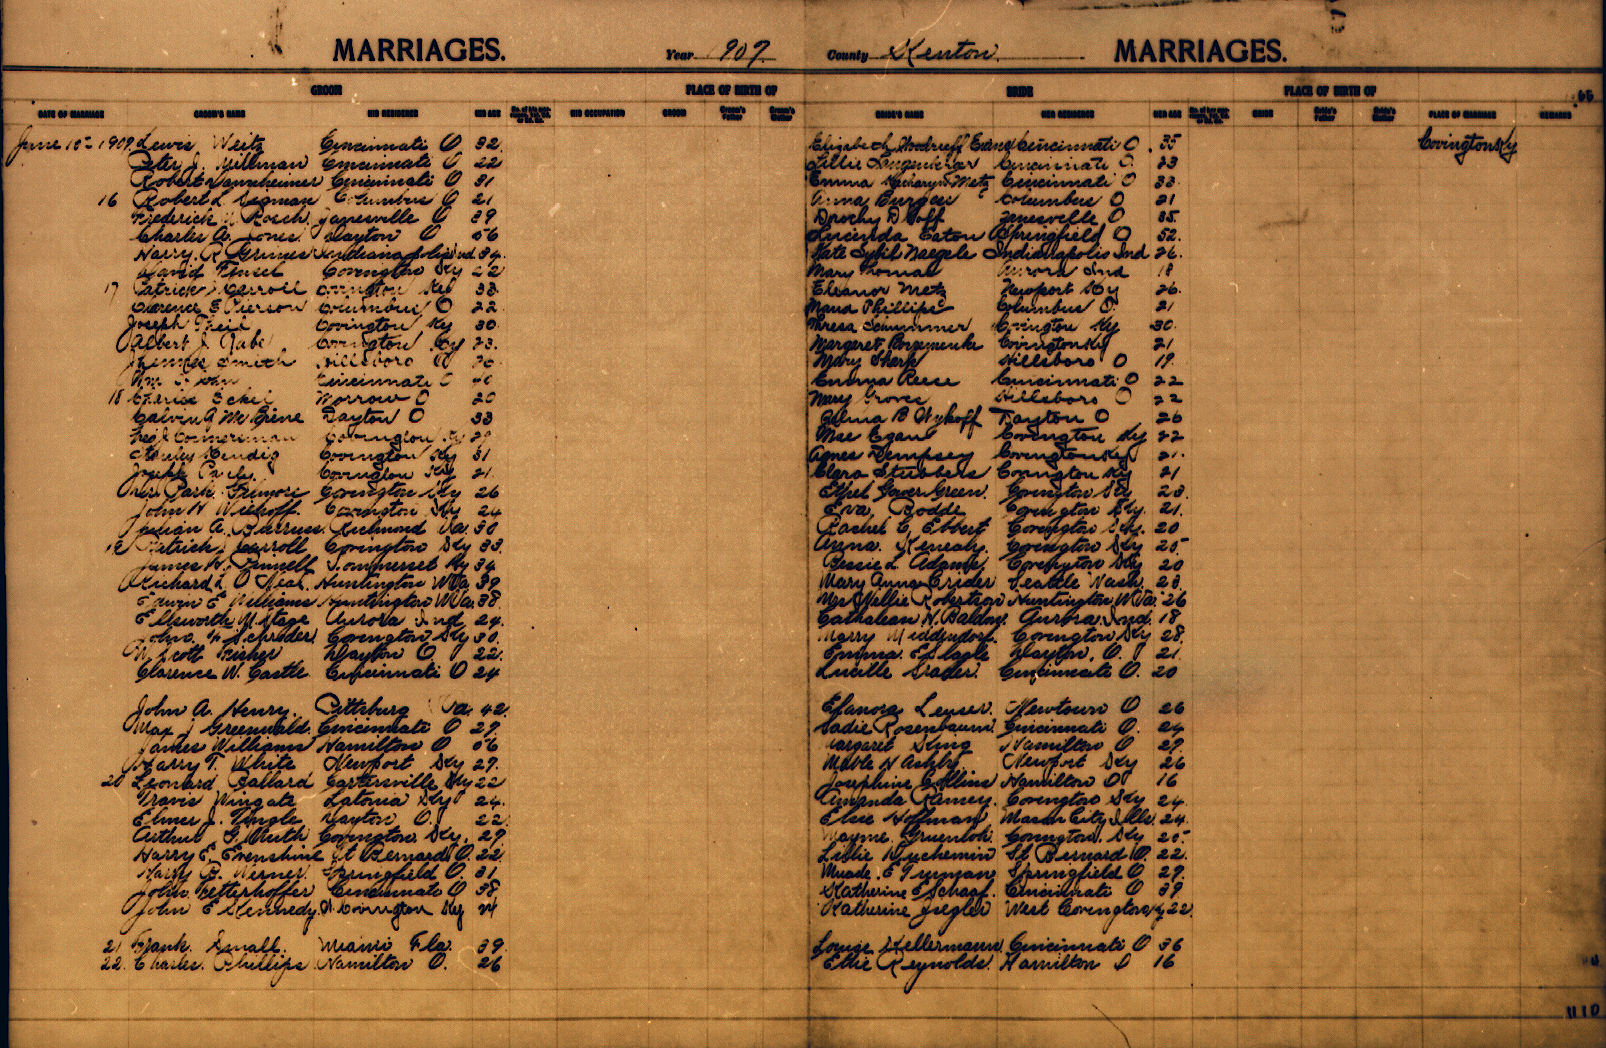 MARRIAGES. Year 1909. County Kenton. MARRIAGES.
GROOM PLACE OF BIRTH OF BRIDE PLACE OF BIRTH OF
DATE OF MARRIAGE GROOM'S NAME HIS RESIDENCE HIS AGE HIS OCCUPATION GROOM Groom's Father Groom's Mother BRIDE'S NAME HER RESIDENCE HER AGE BRIDE Bride's Father Bride's Mother PLACE OF MARRIAGE REMARKS
June 15 1909 Lewis Weitz Cincinnati O 32. Elizabeth Woodruff Cincinnati O. 35 Covington Ky
Peter J. Millman Cincinnati O 22 Lillie Cincinnati O. 23
Robert Mannheimer Cincinnati O 31 Emma Zachary Metz Cincinnati O 33.
16 Robert L Sigman Columbus O 21 Anna Burger Columbus O 21
Frederick Rosch Zanesville O 39 Dorothy D Goff Zanesville O 35
Charles A. Jones Dayton O 56 Lucinda Eaton Springfield O 52.
Harry R Grimes Indianapolis Ind. 34. Kate Sybil Naegele Indianapolis Ind 26.
David Tensel Covington Ky 22 Mary Thomas Aurora Ind 18
17 Patrick J Carroll Covington Ky 33. Eleanor Metz Newport Ky 26.
Clarence E Pierson Columbus O 22. Maud Phillips Columbus O. 21
Joseph Theil Covington Ky 30. Thresa Schummer Covington Ky 30.
Albert J. Rabe Covington Ky 23. Margaret Covington Ky 21
Smith Hillsboro O Mary Sharp Hillsboro O 19.
Wm Cincinnati O Emma Reese Cincinnati O 22
18 Eckel Morrow O 20 Mary Grove Hillsboro O 22
Calvin A McGrene Dayton O 33 Zelma B Wykoff Dayton O 26
Geo J Covington Ky 29 Mae Egan Covington Ky 22
Stanley Kendig Covington Ky 31 Agnes Dempsey Covington Ky 21.
Joseph Covington Ky 21. Clara Stubbers Covington Ky 21
Park Gilmore Covington Ky 26 Ethel Gower Green. Covington Ky 23.
John H Wiehoff Covington Ky 24 Eva Bodde Covington Ky. 21.
Julian A. Burruss Richmond Va. 30 Rachel C. Ebbert Covington Ky. 20
19 Patrick J Carroll Covington Ky 33. Anna Kenealy Covington Ky 25
James H. Pinnell Sommerset Ky 34 Bessie L Adams Covington Ky 20
Richard L O Neal Huntington W Va. 39 Mary Anna Crider Seattle Wash. 23.
Edwin E Williams Huntington W Va. 38. Mrs Nellie Robertson Huntington W Va. 26
Ellsworth M Stage Aurora Ind 24. Cathaleen H. Baldon Aurora Ind. 18
John H Schroder Covington Ky 30. Marry Middendorf. Covington Ky 28.
W. Scott Fisher Dayton O 22. Emma Eslagle Dayton. O. 21.
Clarence W. Castle Cincinnati O 24 Lucille Srader. Cincinnati O. 20
John A. Henry. Pittsburg Pa. 42 Elanora Leuser. Newtown O 26
Max J Greenwald. Cincinnati O 29. Sadie Rosenbaum. Cincinnati O. 24
James Williams Hamilton O 56 Margaret Sting Hamilton O 29.
Harry T. White Newport Ky 29. Mable H Ashby. Newport Ky 26
20 Leonard Ballard Cartersville Ky 22 Josephine Collins Hamilton O 16
Travis Wingate Latonia Ky 24. Amanda Ramey. Covington Ky 24.
Elmer J. Pingle Dayton O. 22. Elsie Hoffman Mason City Ills. 24.
Arthur G. Muth Covington Ky. 29 Mayme Gruenloh. Covington. Ky 25.
Harry E. Evenshine St Bernard O. 22 Lillie Duchemin St Bernard O. 22.
Harry B. Werner. Springfield O. 31 Maude. E Truman Springfield O 29.
John Fetterhoffer Cincinnati O 38 Katherine E Schaaf. Cincinnati O 39
John E Kennedy. W. Covington Ky 24 Katherine Ziegler West Covington Ky 22.
21 Frank. Small. Miami Fla. 39. Louise Kellermann. Cincinnati O 36
22. Charles. Phillips Hamilton O. 26 Effie Reynolds. Hamilton O 16